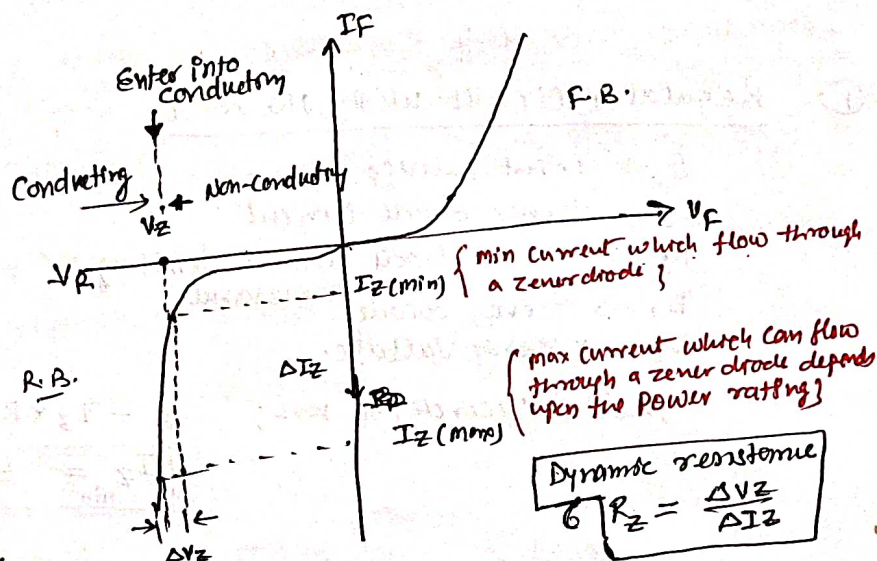 IF
Enter into
conductory
F.B.
Conducting
Non-Conductry
VZ
VF
-VR
IZ(min) { min current which flow through
a zenerdiode }
R.B.
ΔIZ
IZ(max)
{ max current which can flow
through a zener diode depends
upon the power rating}
Dynamic resistance
RZ = ΔVZ
ΔIZ
ΔVZ